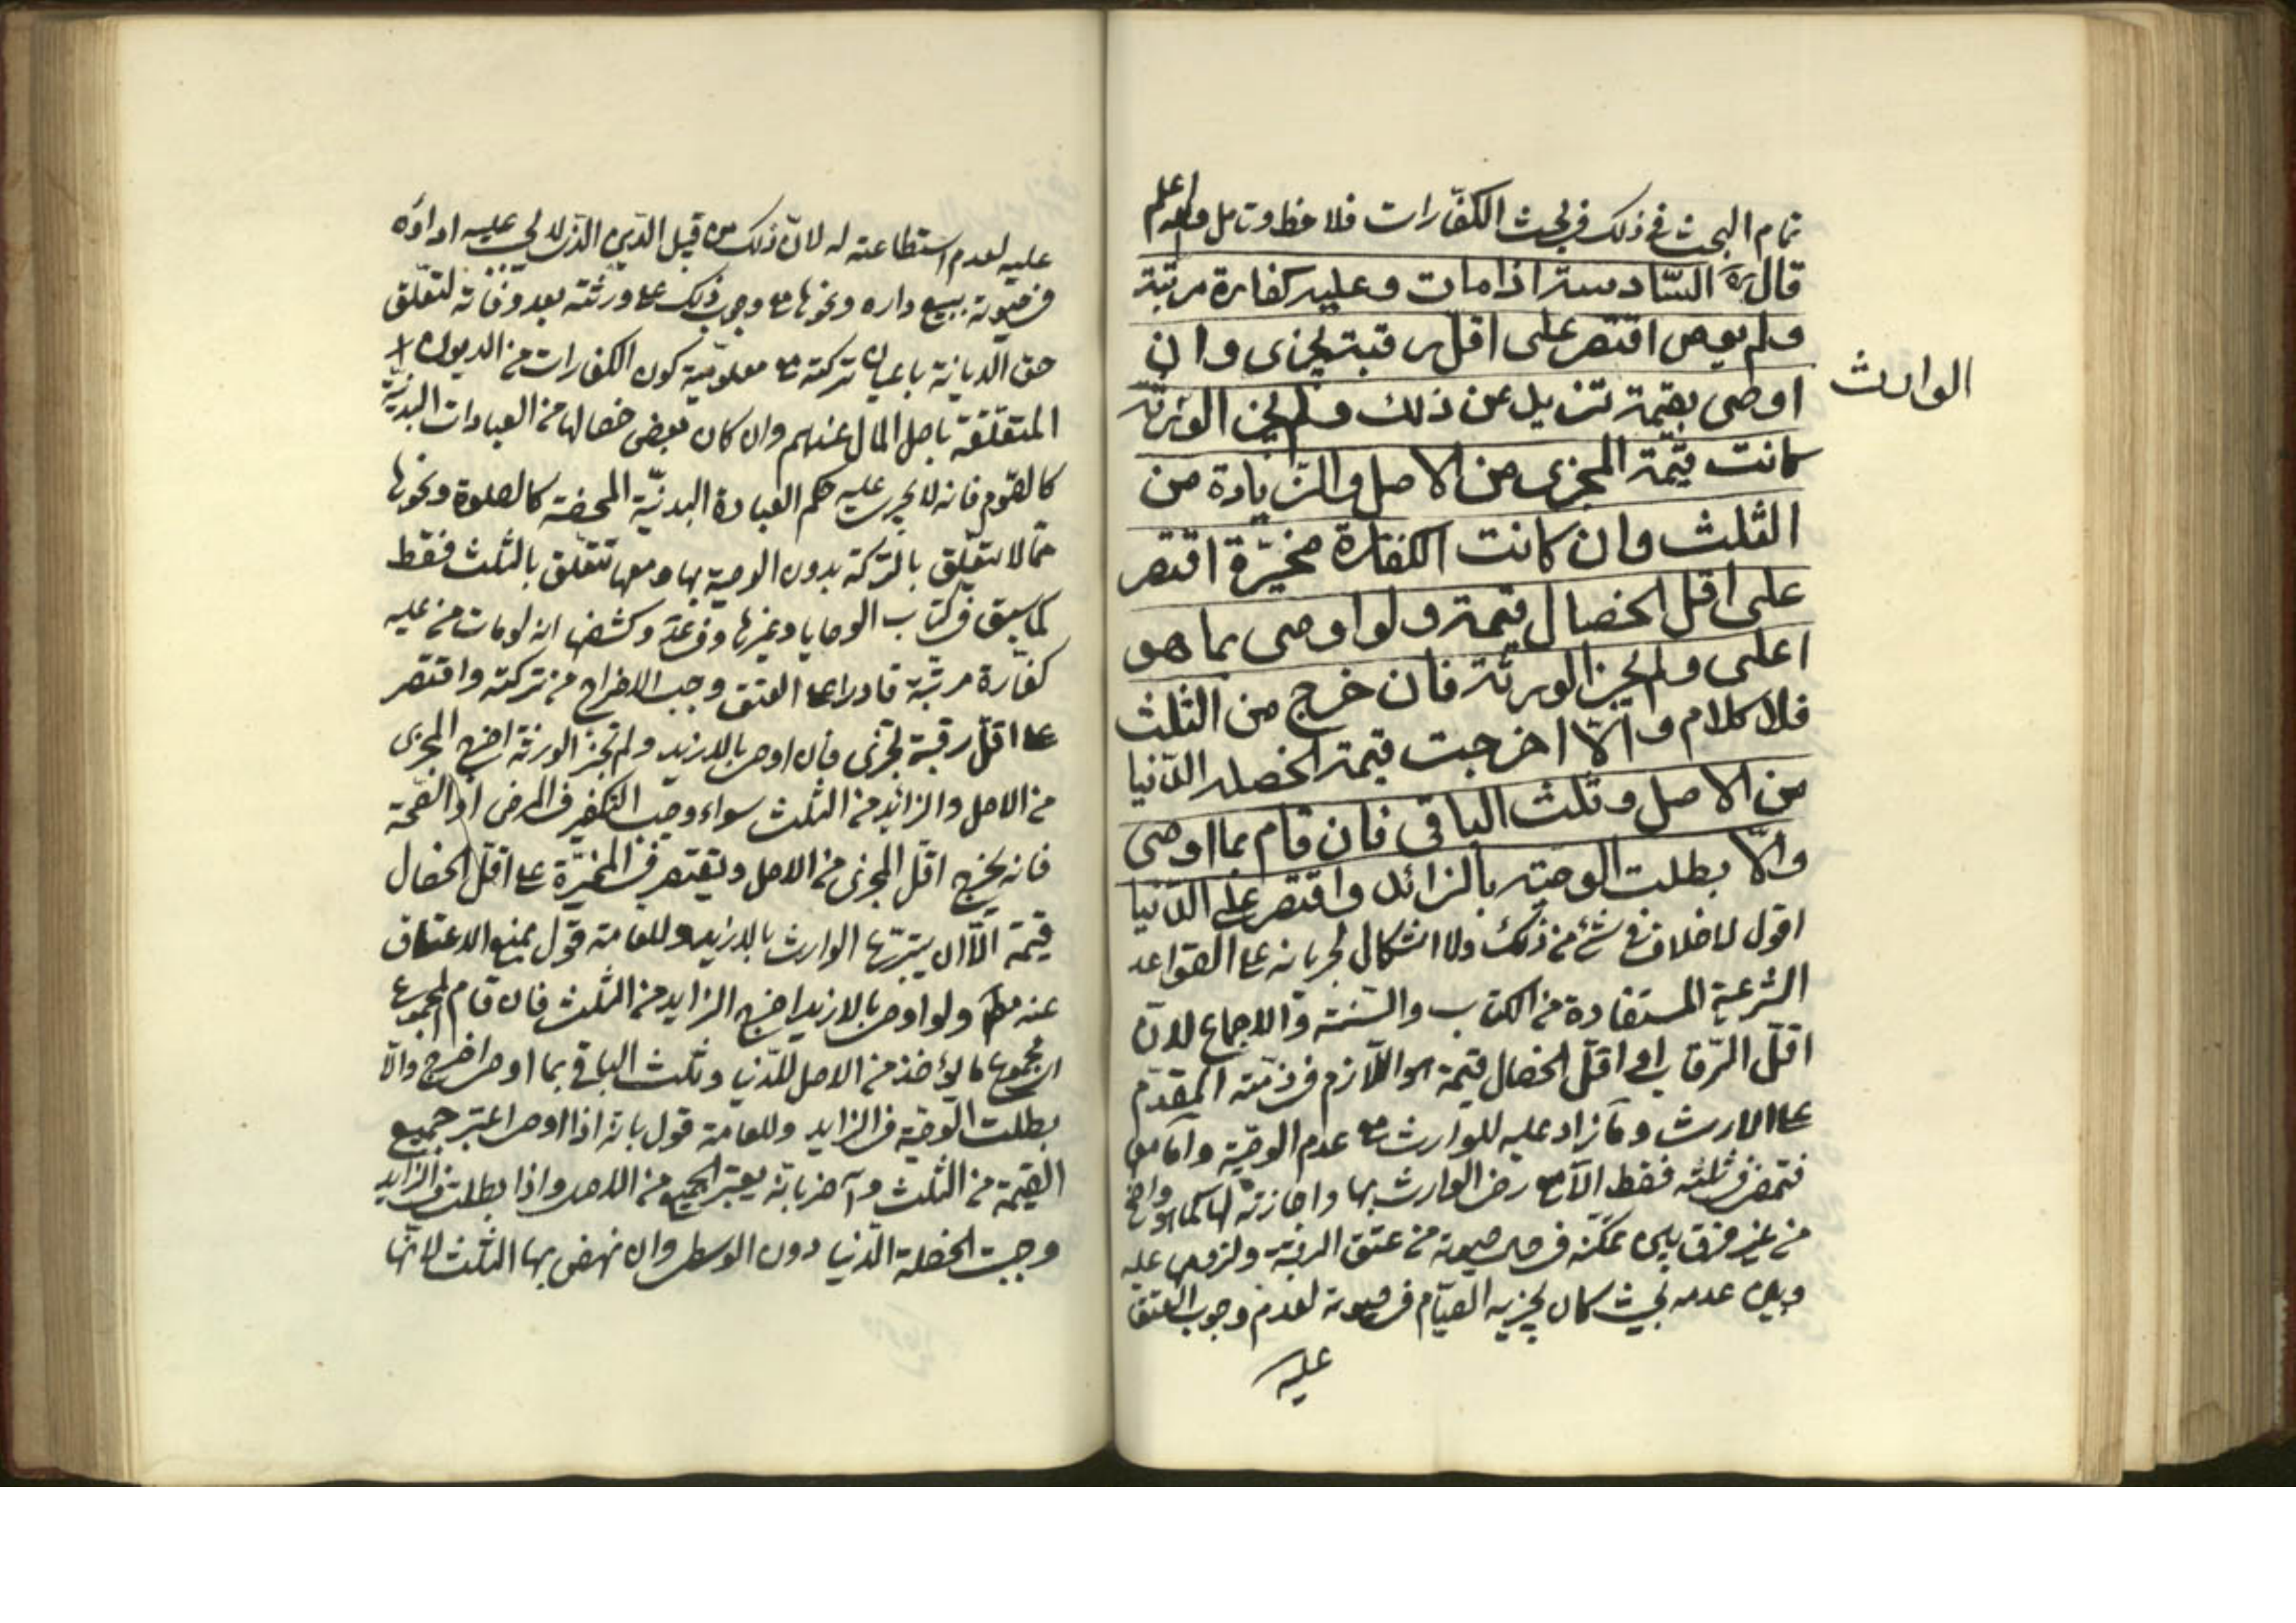 تمام البحث في ذلك في بحث الكفّارات فلاحظ وتامل والله اعلم
قال ره السّادسة اذا مات وعليه كفارة مرتبة
ولم يوص اقتصر على اقل رقبة تجزى وان
اوصى بقيمة تزيد عن ذلك ولم يجز الورثة
الوارث
كانت قيمة المجزى من الاصل والزيادة من
الثلث وان كانت الكفارة مخيّرة اقتصر
على اقل الخصال قيمة ولو اوصى بما هو
اعلى ولم يجز الورثة فان خرج من الثلث
فلا كلام والّا اخرجت قيمة الخصلة الدّنيا
من الاصل وثلث الباقى فان قام بما اوصى
والّا بطلت الوصيّة بالزائد واقتصر على الدّنيا
اقول لا خلاف في شئ من ذلك ولا اشكال لجريانه على القواعد
الشرعية المستفادة من الكتاب والسّنة والاجماع لانّ
اقلّ الرّقاب او اقلّ الخصال قيمة هو اللّازم في ذمّته المقدّم
على الارث وما زاد عليه للوارث مع عدم الوصيّة وامّا معها
فتمضى في ثلثه فقط الّا مع رضى الوارث بها واجازته لها كما هو واضح
من غير فرق بين تمكّنه في حال حيوته من عتق الرقبة ولزومه عليه
وبين عدمه بحيث كان يجزيه الصّيام في حيوته لعدم وجوب العتق
عليه
عليه لعدم استطاعته له لانّ ذلك من قبيل الدّين الذى لا يجب عليه اداؤه
في حيوته ببيع داره ونحوها مع وجوب ذلك على ورثته بعد وفاته لتعلّق
حق الدّيانة باعيان تركته مع معلوميّة كون الكفارات من الديون
المتعلّقة باصل المال عندهم وان كان بعض خصالها من العبادات البدنيّة
كالصّوم فانه لا يجرى عليه حكم العبادة البدنيّة المحضة كالصلوة ونحوها
ممّا لا يتعلّق بالتركة بدون الوصية بها ومعها تتعلّق بالثلث فقط
كما سبق في كتاب الوصايا وغيرها وفى عد وكشفها انه لو مات من عليه
كفّارة مرتّبة قادرا على العتق وجب الاخراج من تركته واقتصر
على اقلّ رقبة تجزى فان اوصى بالازيد ولم تجز الورثة اخرج المجزى
من الاصل والزائد من الثلث سواء وجب التكفير في المرض او الصّحة
فانه يخرج اقلّ المجزى من الاصل ويقتصر في المخيّرة على اقلّ الخصال
قيمة الّا ان يتبرّع الوارث بالازيد وللعامة قول بمنع الاعتاق
عنه مط ولو اوصى بالازيد اخرج الزايد من الثلث فان قام المجموع
اى مجموع ما يؤخذ من الاصل للدّنيا وثلث الباقى بما اوصى اخرج والّا
بطلت الوصيّة في الزايد وللعامة قول بانّه اذا اوصى اعتبر جميع
القيمة من الثلث وآخر بانّه يعتبر الجميع من الاصل واذا بطلت في الزايد
وجبت الخصلة الدّنيا دون الوسطى وان نهض بها الثلث لانّها